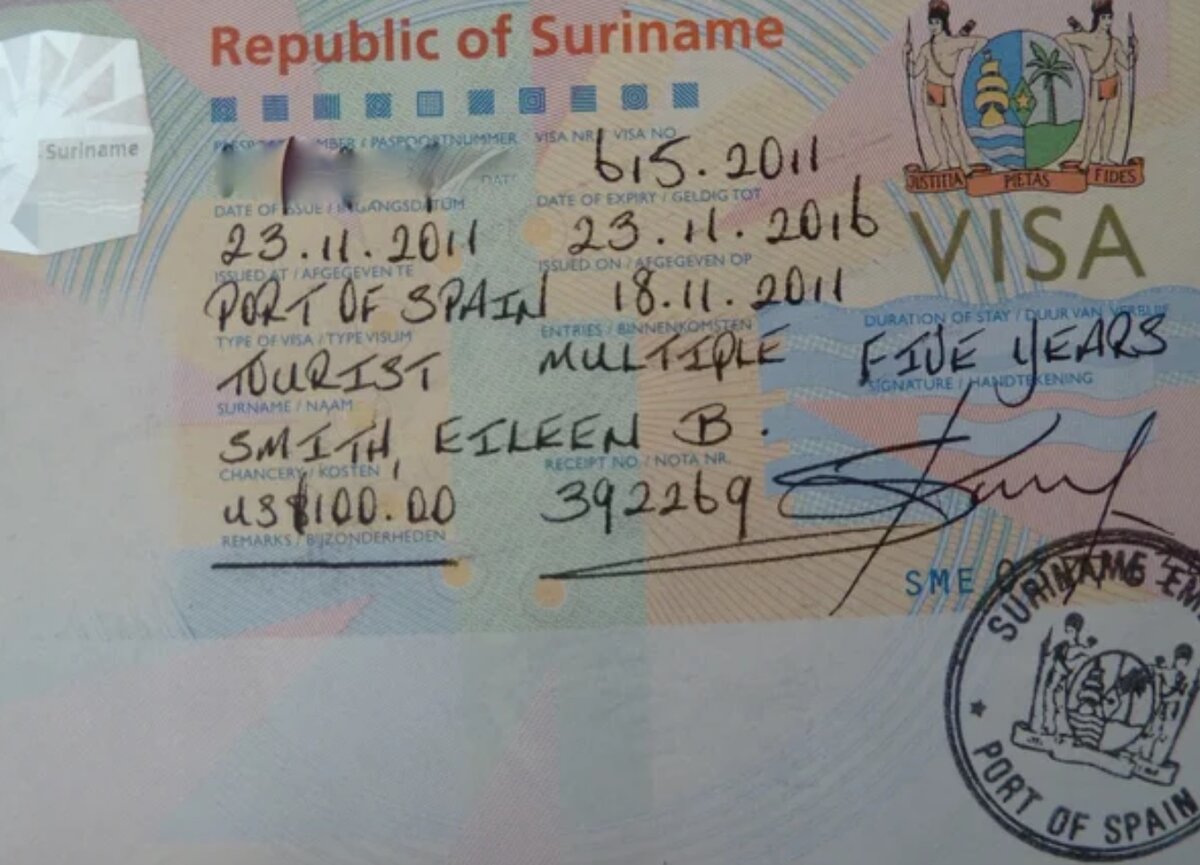 Republic of Suriname
Suriname
PASPOORTNUMMER VISA NR / VISA NO
615.2011
JUSTITIA PIETAS FIDES
DATE OF ISSUE / INGANGSDATUM DATE OF EXPIRY / GELDIG TOT
23.11.2011 23.11.2016
VISA
ISSUED AT / AFGEGEVEN TE ISSUED ON / AFGEGEVEN OP
PORT OF SPAIN 18.11.2011
TYPE OF VISA / TYPE VISUM ENTRIES / BINNENKOMSTEN DURATION OF STAY / DUUR VAN VERBLIJF
TOURIST MULTIPLE FIVE YEARS
SURNAME / NAAM SIGNATURE / HANDTEKENING
SMITH, EILEEN B.
CHANCERY / KOSTEN RECEIPT NO. / NOTA NR.
US$100.00 392269
REMARKS / BIJZONDERHEDEN
SME
SURINAME EM
PORT OF SPAIN